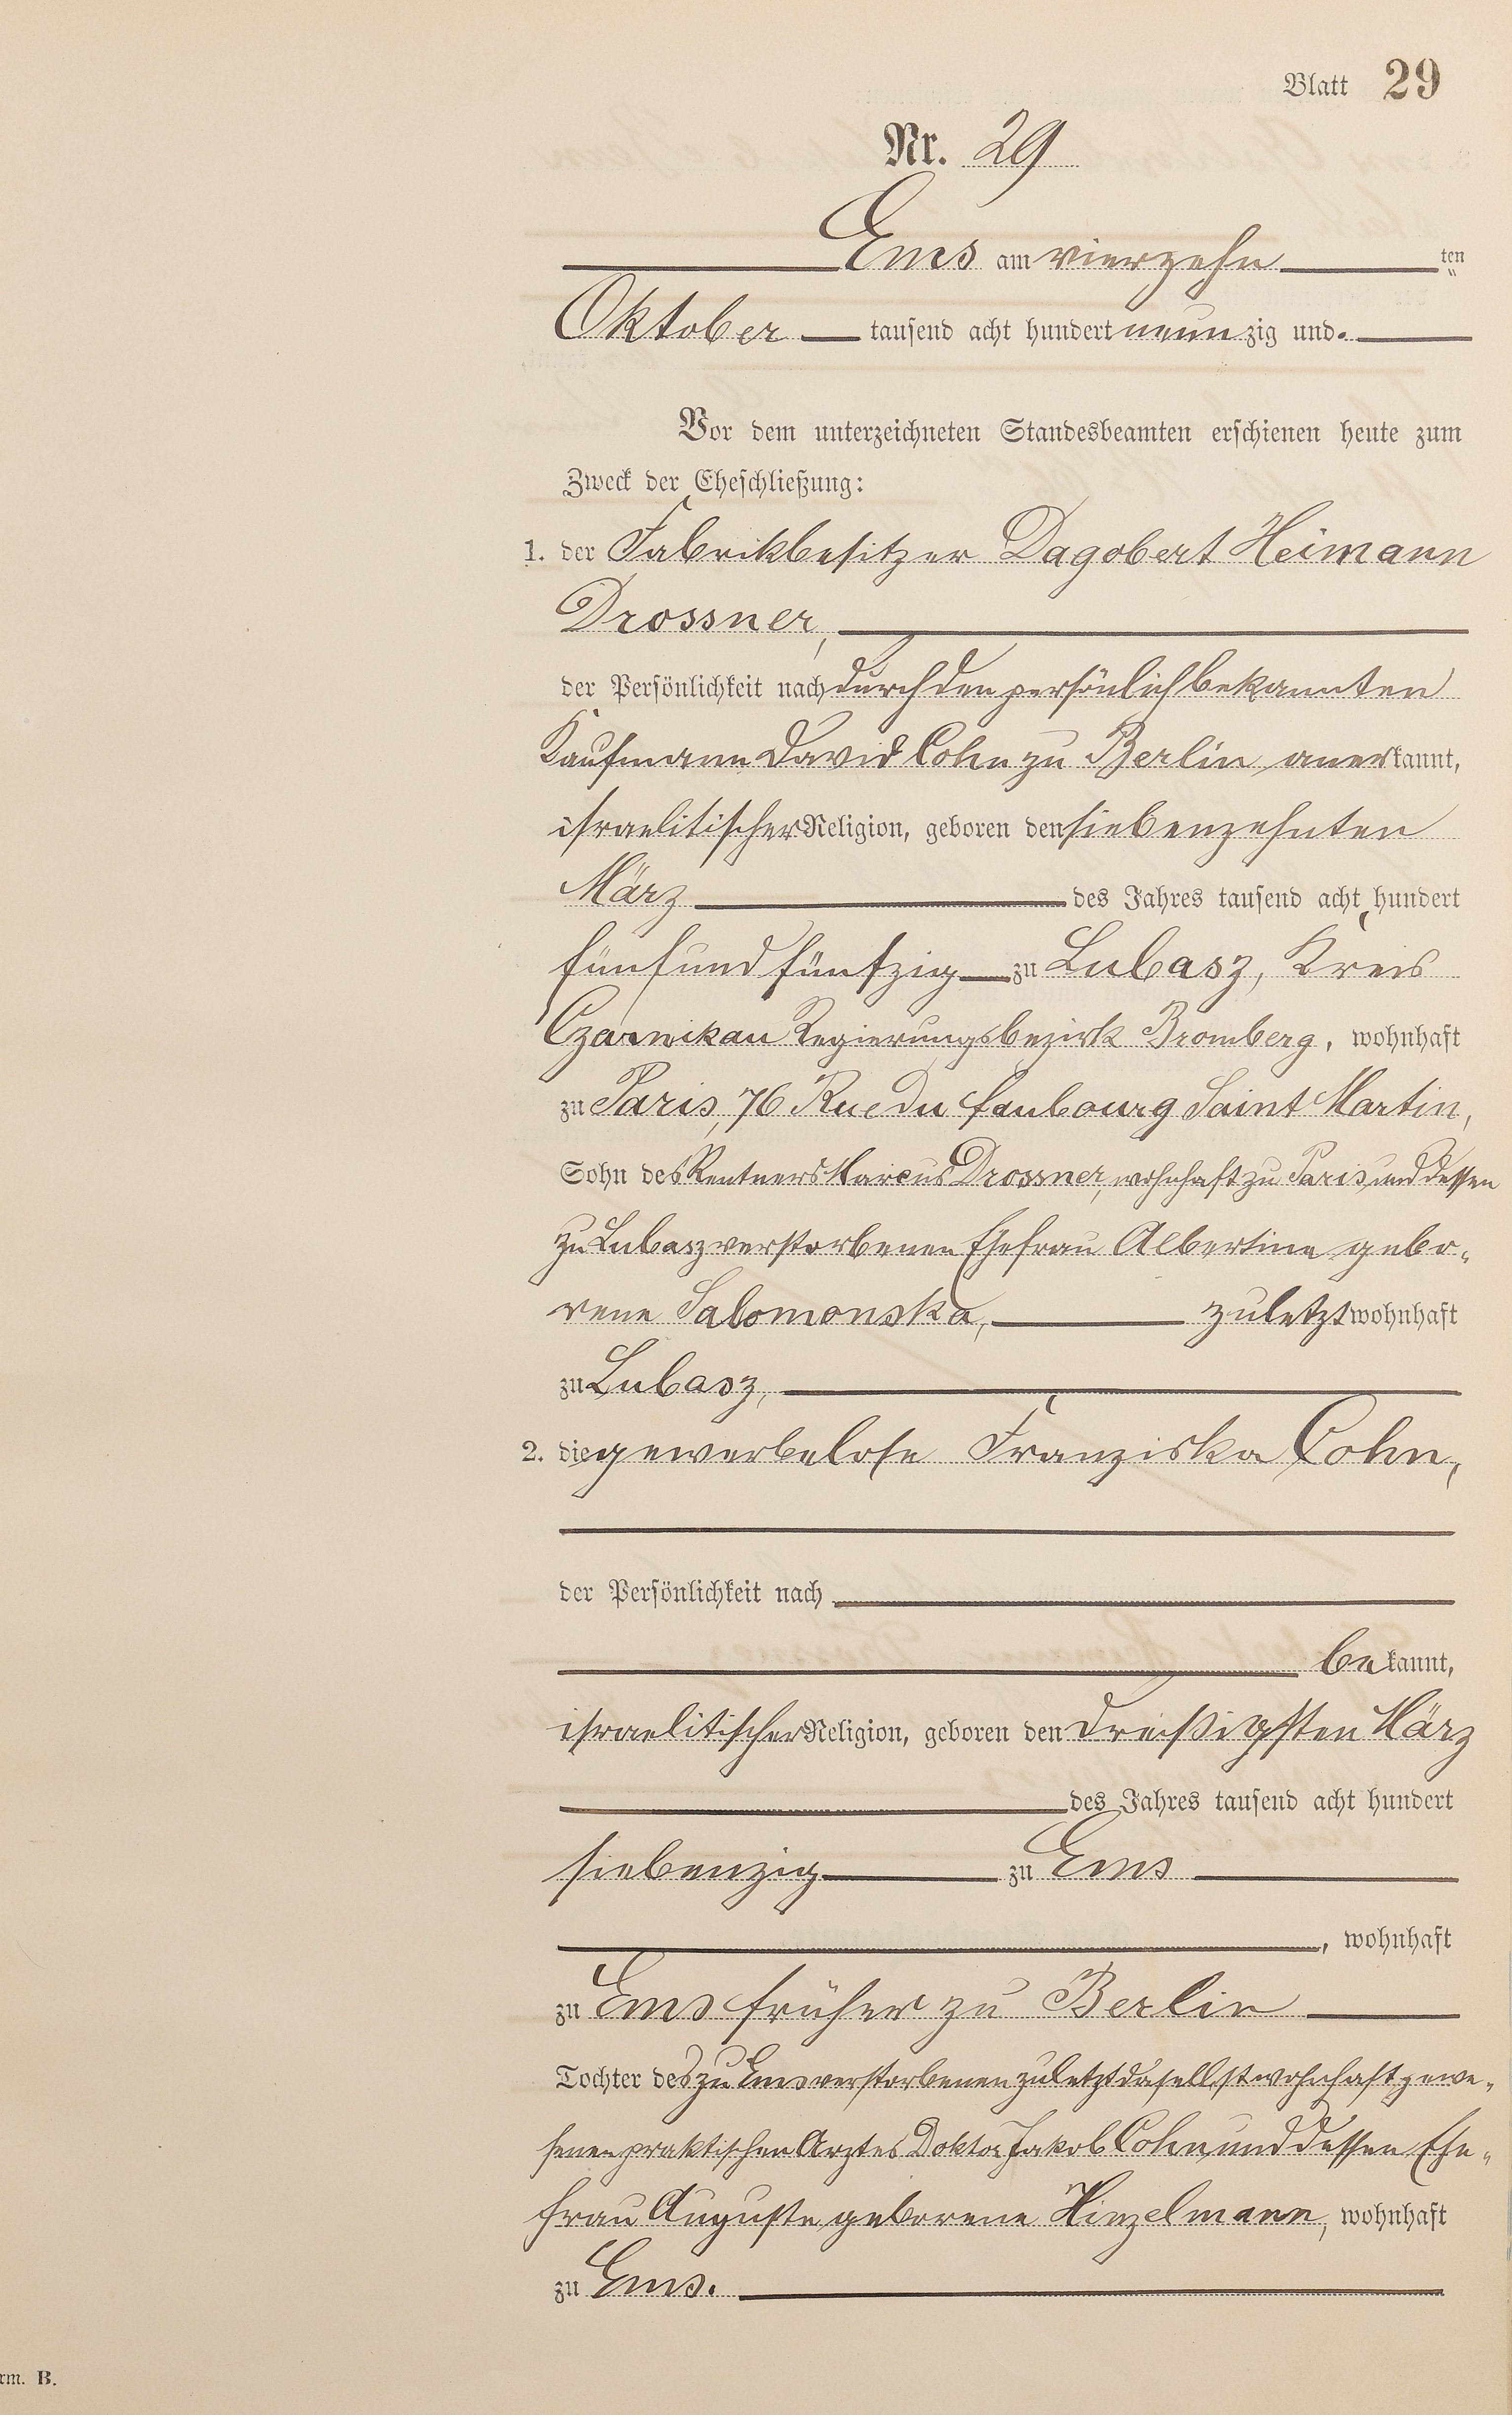 Blatt 29
Nr. 29
Ems am vierzehn ten
Oktober tausend acht hundert neunzig und
Vor dem unterzeichneten Standesbeamten erschienen heute zum
Zweck der Eheschließung:
1. der Fabrikbesitzer Dagobert Heimann
Drossner,
der Persönlichkeit nach durch den persönlich bekannten
Kaufmann David Cohn zu Berlin anerkannt,
israelitischer Religion, geboren den siebenzehnten
März des Jahres tausend acht hundert
fünfund fünfzig zu Lubasz, Kreis
Czarnikau Regierungsbezirk Bromberg, wohnhaft
zu Paris, 76 Rue du faubourg Saint Martin,
Sohn des Rentners Marcus Drossner, wohnhaft zu Paris und dessen
zu Lubasz verstorbenen Ehefrau Albertine gebo-
rene Salomonska, zuletzt wohnhaft
zu Lubasz,
2. die gewerbelose Franziska Cohn,
der Persönlichkeit nach
bekannt,
israelitischer Religion, geboren den dreißigsten März
des Jahres tausend acht hundert
siebenzig zu Ems
, wohnhaft
zu Ems früher zu Berlin
Tochter des zu Ems verstorbenen zuletzt daselbst wohnhaft gewe-
senen praktischen Arztes Doktor Jakob Cohn und dessen Ehe-
frau Auguste geborene Hinzelmann, wohnhaft
zu Ems.
rm. B.